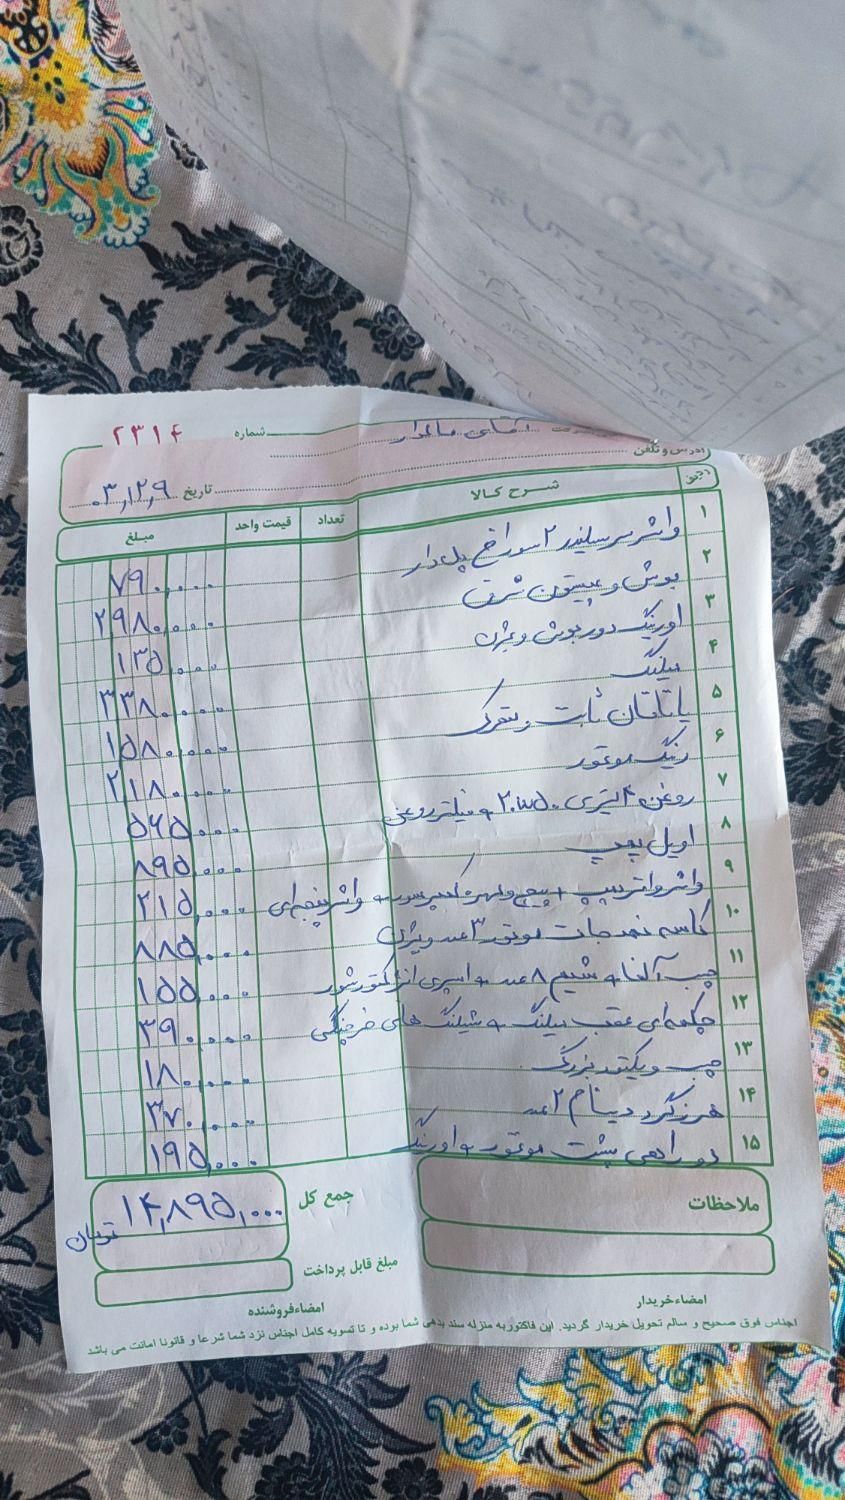 آقای ماندار
شماره ۲۳۱۴
آدرس و تلفن
تاریخ ۰۳,۱۲,۹
شرح کالا تعداد قیمت واحد مبلغ
۱ واشر سرسیلندر ۲ سوراخ پل دار ۷۹۰,۰۰۰
۲ بوش و پیستون شرق ۲۹۸۰,۰۰۰
۳ اورینگ دور بوش ویژن ۱۳۵,۰۰۰
۴ میلنگ ۳۳۸۰,۰۰۰
۵ یاتاقان ثابت و متحرک ۱۵۸۰,۰۰۰
۶ رینگ موتور ۲۱۸۰,۰۰۰
۷ روغن ۴ لیتری ۲۰.۵۰ + فیلتر روغن ۵۶۵,۰۰۰
۸ اویل پمپ ۸۹۵,۰۰۰
۹ واشر واترپمپ + پیچ و مهره کمپرسور + واشر پنجه‌ای ۲۱۵,۰۰۰
۱۰ کاسه نمدجات موتور ۳ عدد ویژن ۸۸۵,۰۰۰
۱۱ چسب آلفا + شنیم ۸ عدد + اسپری انژکتورشور ۱۵۵,۰۰۰
۱۲ چکمه‌ای عقب میلنگ + شیلنگ های خرچنگی ۳۹۰,۰۰۰
۱۳ چسب ویکتور بزرگ ۱۸۰,۰۰۰
۱۴ هرزگرد دینام ۲ عدد ۳۷۰,۰۰۰
۱۵ دو راهی پشت موتور + اورینگ ۱۹۵,۰۰۰
ملاحظات جمع کل ۱۴,۸۹۵,۰۰۰ تومان
مبلغ قابل پرداخت
امضاءخریدار امضاءفروشنده
اجناس فوق صحیح و سالم تحویل خریدار گردید. این فاکتور به منزله سند بدهی شما بوده و تا تسویه کامل اجناس نزد شما شرعا و قانونا امانت می باشد